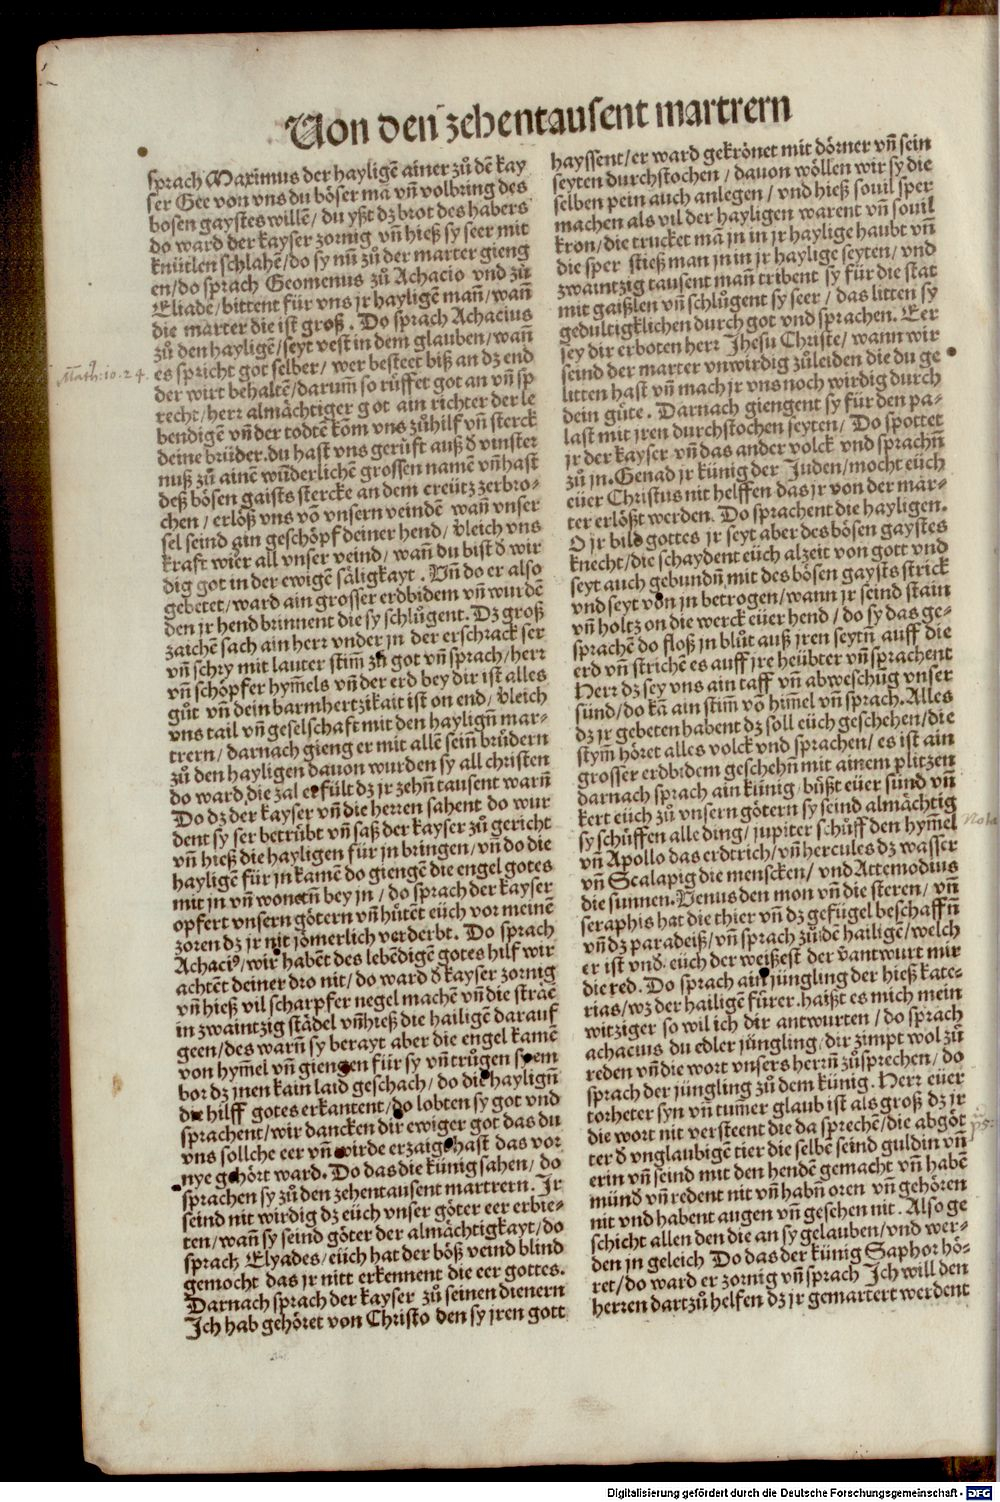 Von den zehentausent martrern
sprach Maximus der hayligē ainer zů dē kay
ser Gee von vns du böser mā vñ volbring des
bosen gaystes willē / du yßt dz brot des habers
do ward der kayser zornig vñ hieß sy seer mit
knütlen schlahē / do sy nun zů der marter gieng
en / do sprach Geomenus zů Achacio vnd zů
Eliadē / bittent für vns jr hayligē mañ / wañ
die marter die ist groß . Do sprach Achacius
zů den hayligē / seyt vest in dem glauben / wañ
es spricht got selber / wer besteet biß an dz end
der wirt behaltē / darum̄ so růffet got an vñ sp
recht / herr almächtiger got ain richter der le
bendigē vñ der todtē kōm vns zůhilf vñ sterck
deine brüder . du hast vns gerüft auß d̄ vinster
nuß zů ainē wūderlichē grossen namē vñ hast
deß bösen gaists stercke an dem creütz zerbro-
chen / erlöß vns vō vnsern veindē wañ vnser
sel seind ain geschöpf deiner hend / v̈leich vns
kraft wider all vnser veind / wañ du bist d̄ wir
dig got in der ewigē säligkayt . Vñ do er also
gebetet / ward ain grosser erdbidem vñ wurdē
den jr hend brinnent die sy schlůgent . Dz groß
zaichē sach ain herr vnder jn der erschrack ser
vñ schry mit lauter stim̄ zů got vñ sprach / herr
vñ schöpfer hym̄els vñ der erd bey dir ist alles
gůt vñ dein barmhertzikait ist on end / v̈leich
vns tail vñ geselschaft mit den hayligñ mar-
trern / darnach gieng er mit allē seinn̄ brůdern
zů den hayligen dauon wurden sy all christen
do ward die zal erfült dz jr zehñ tausent warñ
Do dz der kayser vñ die herren sahent do wur
dent sy ser betrübt vñ saß der kayser zů gericht
vñ hieß die hayligen für jn bringen / vñ do die
hayligē für jn kamē do giengē die engel gotes
mit jn vñ wonetñ bey jn / do sprach der kayser
opfert vnsern göttern vñ hůtēt eüch vor meinē
zoren dz jr nit jömerlich verderbt . Do sprach
Achaciꝰ / wir habēt des lebēdigē gotes hilf wir
achtēt deiner dro nit / do ward d̄ kayser zornig
vñ hieß vil scharpfer negel machē vñ die sträē
in zwaintzig städel vñ hieß die hailigē darauf
geen / des warñ sy berayt aber die engel kamē
von hym̄el vñ giengen für sy vñ trůgen sy em
bor dz jnen kain laid geschach / do die hayligñ
die hilff gotes erkantent / do lobten sy got vnd
sprachent / wir dancken dir ewiger got das du
vns sollche eer vñ wirde erzaigt hast das vor
nye gehört ward . Do das die künig sahen / do
sprachen sy zů den zehentausent martrern . Jr
seind nit wirdig dz eüch vnser göter eer erbie-
ten / wañ sy seind göter der almächtigkayt / do
sprach Elyades / eüch hat der böß veind blind
gemocht das jr nitt erkennent die eer gottes .
Darnach sprach der kayser zů seinen dienern
Ich hab gehöret von Christo den sy jren gott
hayssent / er ward gekrönet mit dörner vñ sein
seyten durchstochen / dauon wöllen wir sy die
selben pein auch anlegen / vnd hieß souil sper
machen als vil der hayligen warent vñ souil
kron / die trucket mā jn in jr haylige haubt vñ
die sper stieß man jn in jr haylige seyten / vnd
zwaintzig tausent mañ tribent sy für die stat
mit gaißlen vñ schlůgent sy seer / das litten sy
gedultigklichen durch got vnd sprachen . Eer
sey dir erboten herr Jhesu Christe / wann wir
seind der marter vnwirdig zůleiden die du ge
litten hast vñ mach jr vns noch wirdig durch
dein gůte . Darnach giengent sy für den pa-
last mit jren durchstochen seyten / Do spottet
jr der kayser vñ das ander volck vnd sprachñ
zů jn . Genad jr künig der Juden / mocht eüch
eüer Christus nit helffen das jr von der mar-
ter erlößt werden . Do sprachent die hayligen .
O jr bild gottes jr seyt aber des bösen gaystes
knecht / die schaydent eüch alzeit von gott vnd
seyt auch gebundñ mit des bösen gaysts strick
vnd seyt von jn betrogen / wann jr seind stain
vñ holtz on die werck eüer hend / do sy das ge-
sprachē do floß jn blůt auß jren seytñ auff die
erd vñ strichē es auff jre heübter vñ sprachent
Herr dz sey vns ain tauff vñ abweschūg vnser
sünd / do kā ain stim̄ vō him̄el vñ sprach . Alles
dz jr gebeten habent dz soll eüch geschehen / die
stym̄ höret alles volck vnd sprachen / es ist ain
grosser erdbidem geschehñ mit ainem plitzen
darnach sprach ain künig / büßt eüer sünd vñ
kert eüch zů vnsern götern sy seind almächtig
sy schüffen alle ding / jupiter schůff den hym̄el
vñ Apollo das erdtrich / vñ hercules dz wasser
vñ Scalapig die menscken / vnd Attemodius
die sunnen . Venus den mon vñ die steren / vñ
seraphis hat die thier vñ dz gefügel beschaffñ
vñ dz paradeiß / vñ sprach zů dē hailigē / welch
er ist vnd̄ eüch der weißest der v̈antwurt mir
die red . Do sprach ain jüngling der hieß kate-
rias / wz der hailigē fürer . haißt es mich mein
witziger so wil ich dir antwurten / do sprach
achacius du edler jüngling / dir zimpt wol zů
reden vñ die wort vnsers herrñ zůsprechen / do
sprach der jüngling zů dem künig . Herr eüer
torheter syn vñ tum̄er glaub ist als groß dz jr
die wort nit versteent die da sprechē / die abgöt
ter d̄ vnglaubigē tier die selbē seind guldin vñ
erin vñ seind mit den hendē gemacht vñ habē
münd vñ redent nit vñ habñ oren vñ gehören
nit vnd habent augen vñ gesehen nit . Also ge
schicht allen den die an sy gelauben / vnd wer-
den jn geleich Do das der künig Saphor hö-
ret / do ward er zornig vñ sprach Ich will den
herren dartzů helfen dz jr gemartert werdent
Math: 10. 24.
Nota
Digitalisierung gefördert durch die Deutsche Forschungsgemeinschaft - DFG